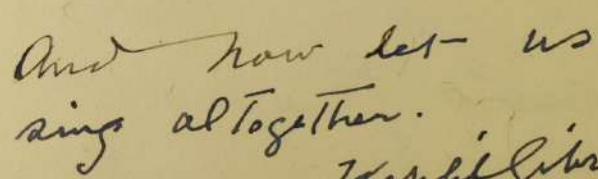 And now let us
sing altogether.